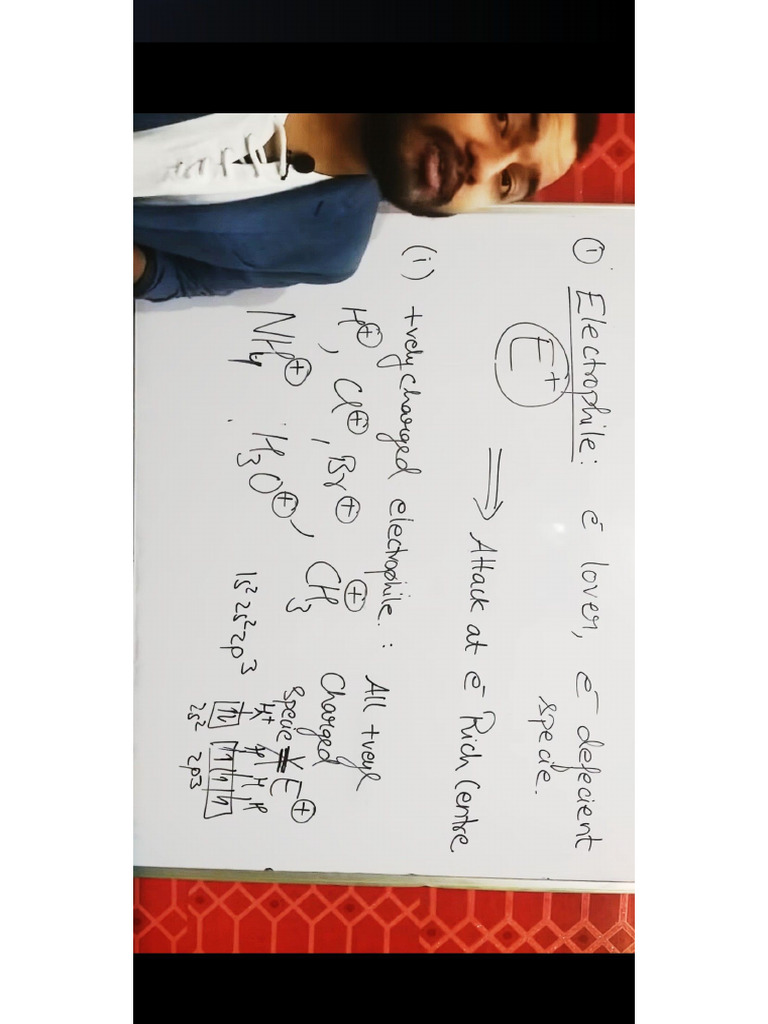 ① Electrophile: e⁻ lover, e⁻ defecient
specie.
E⁺ ⇒ Attack at e⁻ Rich Centre
(i) +vely charged electrophile.: All +veyl
Charged
H⊕, Cl⊕, Br⊕ CH₃⊕
specie ≠ E⊕
NH₄⊕ H₃O⊕,
1s² 2s² 2p³
H⁺ H H H
2s² 2p3